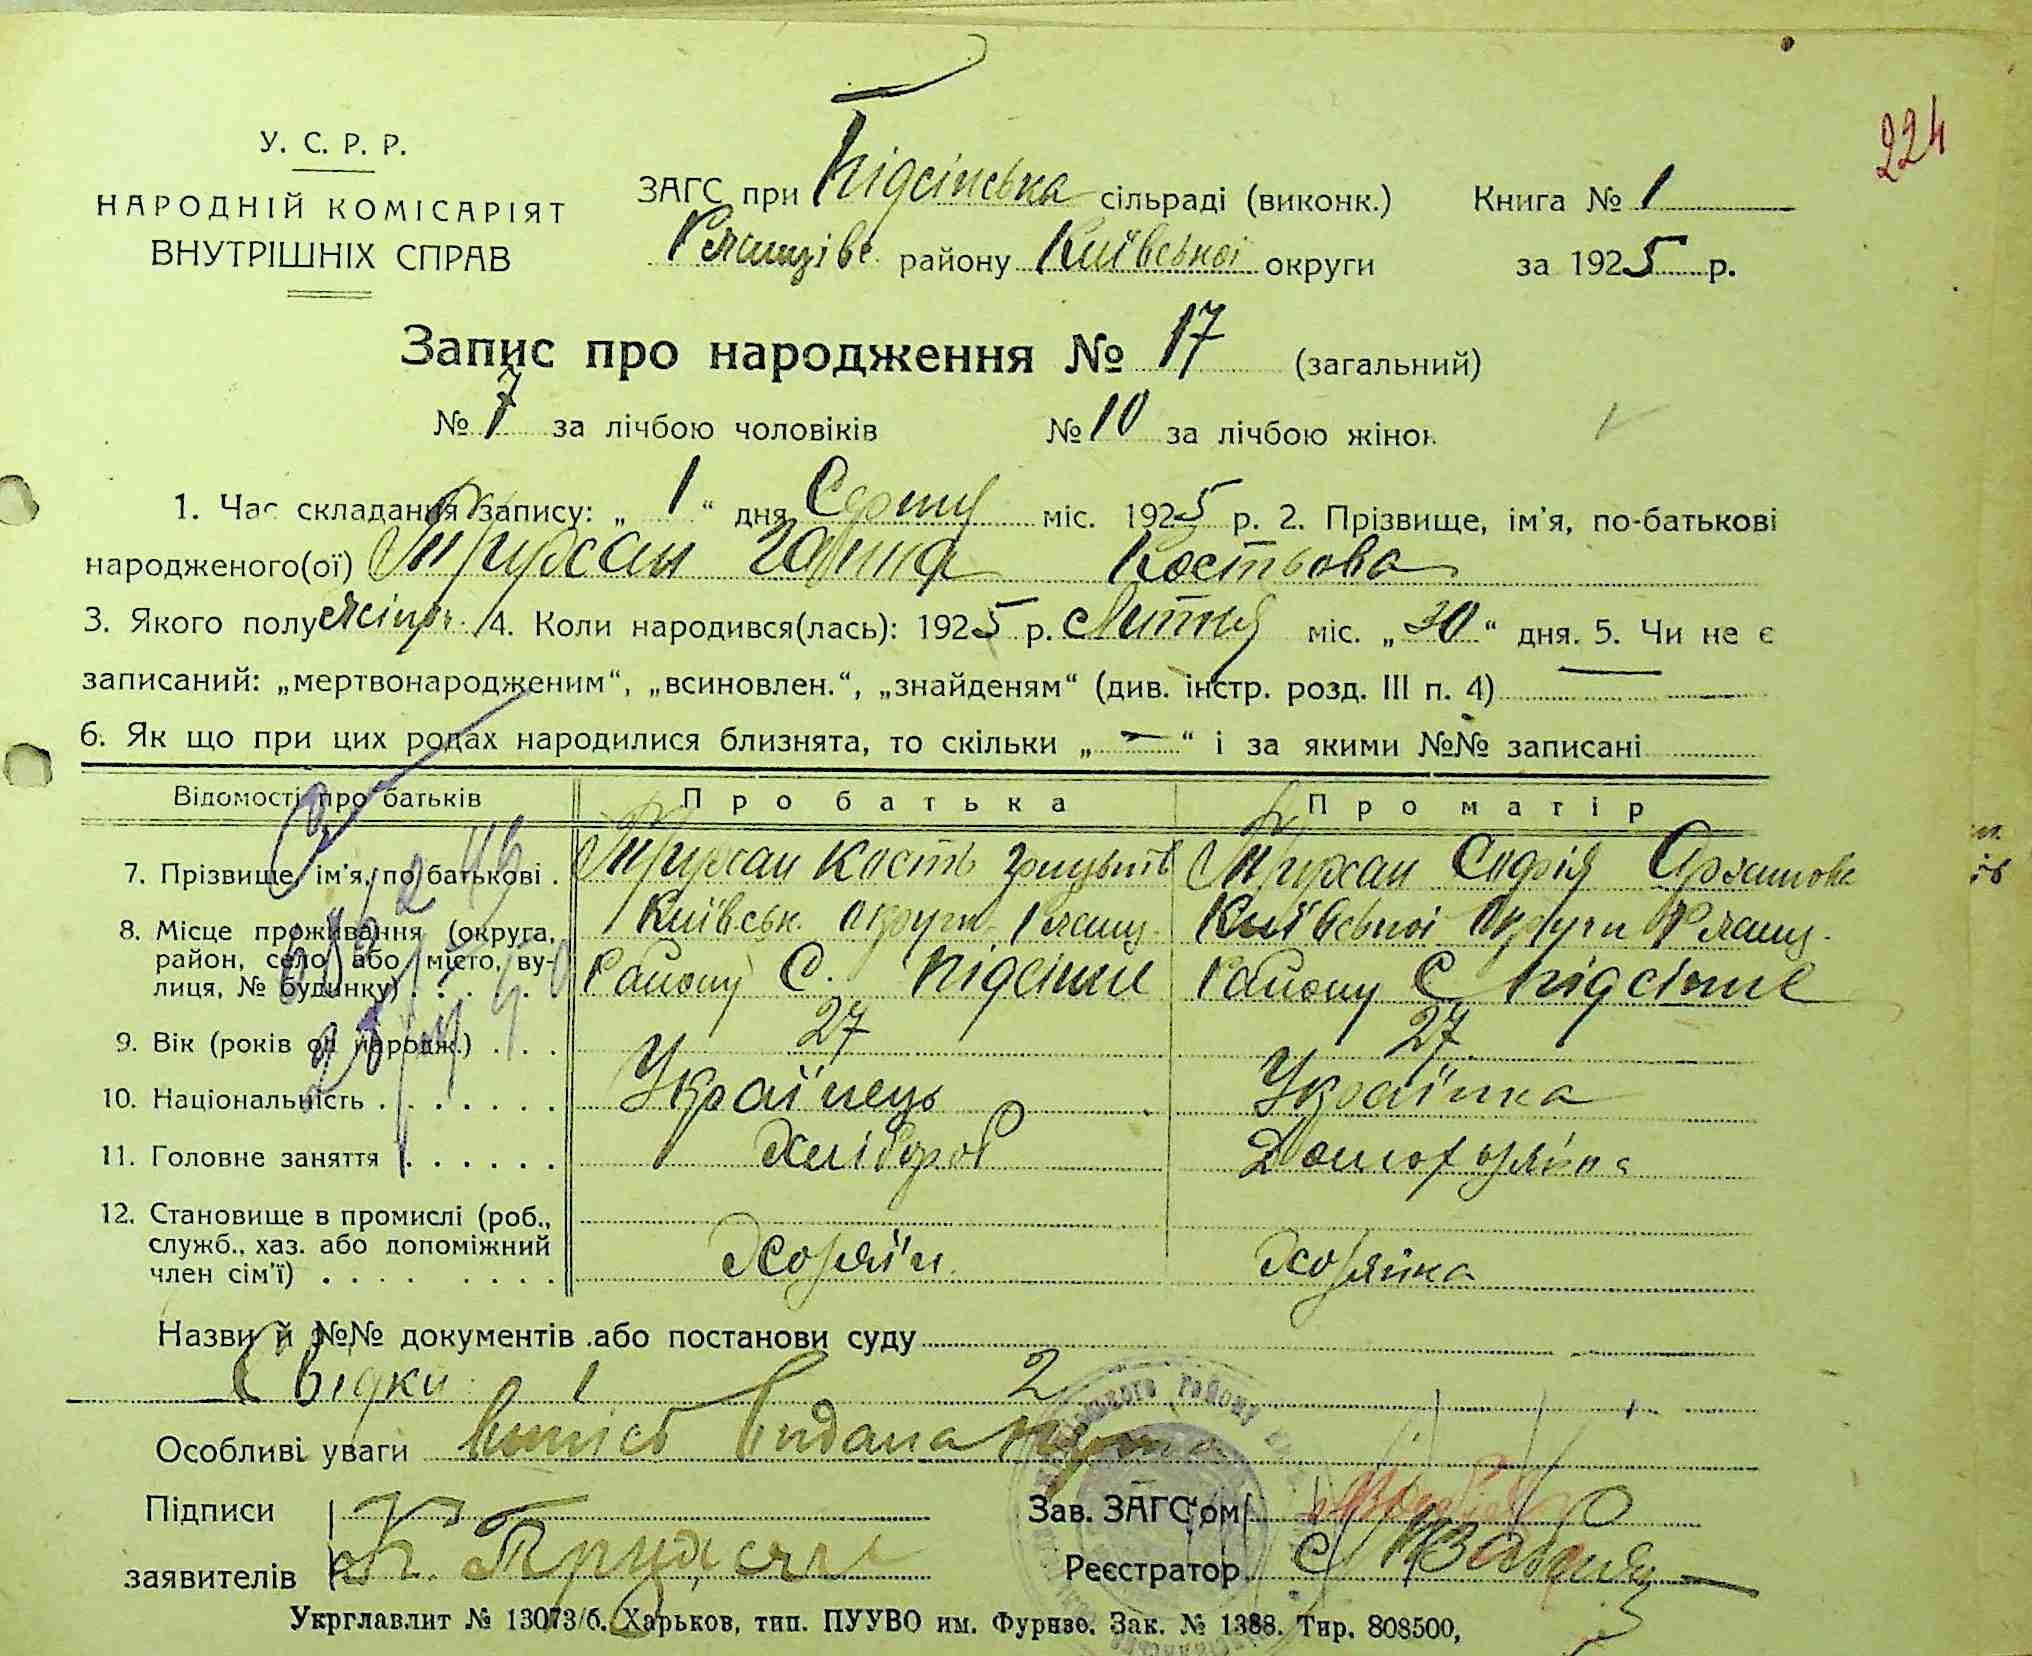 224
У. С. Р. Р.
НАРОДНІЙ КОМІСАРІЯТ
ВНУТРІШНІХ СПРАВ
ЗАГС при Підсінська сільраді (виконк.) Книга № 1
району Київської округи за 1925 р.
Запис про народження № 17 (загальний)
№ 7 за лічбою чоловіків № 10 за лічбою жінок
1. Час складання запису: „ 1 “ дня Серпня міс. 1925 р. 2. Прізвище, ім'я, по-батькові
народженого(ої) Трухан Ганна Костьова
3. Якого полу жіноч. 4. Коли народився(лась): 1925 р. Липня міс. „30“ дня. 5. Чи не є
записаний: „мертвонародженим“, „всиновлен.“, „знайденям“ (див. інстр. розд. III п. 4)
6. Як що при цих родах народилися близнята, то скільки „ — “ і за якими №№ записані
Відомості про батьків Про батька Про матір
7. Прізвище, ім'я, по батькові . Трухан Кость Грицьків Трухан Софія
8. Місце проживання (округа, Київськ. округи Ржищ. Київської округи Ржищ.
район, село або місто, ву- Району С. Підсінне Району С Підсінне
лиця, № будинку) . . . .
9. Вік (років од народж.) . . . 27 27
10. Національність . . . . . . . Українець Українка
11. Головне заняття . . . . . . Хлібороб Домогозяйка
12. Становище в промислі (роб.,
служб., хаз. або допоміжний Хозяїн Хозяйка
член сім'ї) . . . . . . . .
Назви й №№ документів або постанови суду
Свідки 1 2
Особливі уваги випись видана
Підписи Зав. ЗАГС'ом
заявителів К. Трухан Реєстратор
Укрглавлит № 13073/б. Харьков, тип. ПУУВО им. Фрунзе. Зак. № 1388. Тир. 808500,